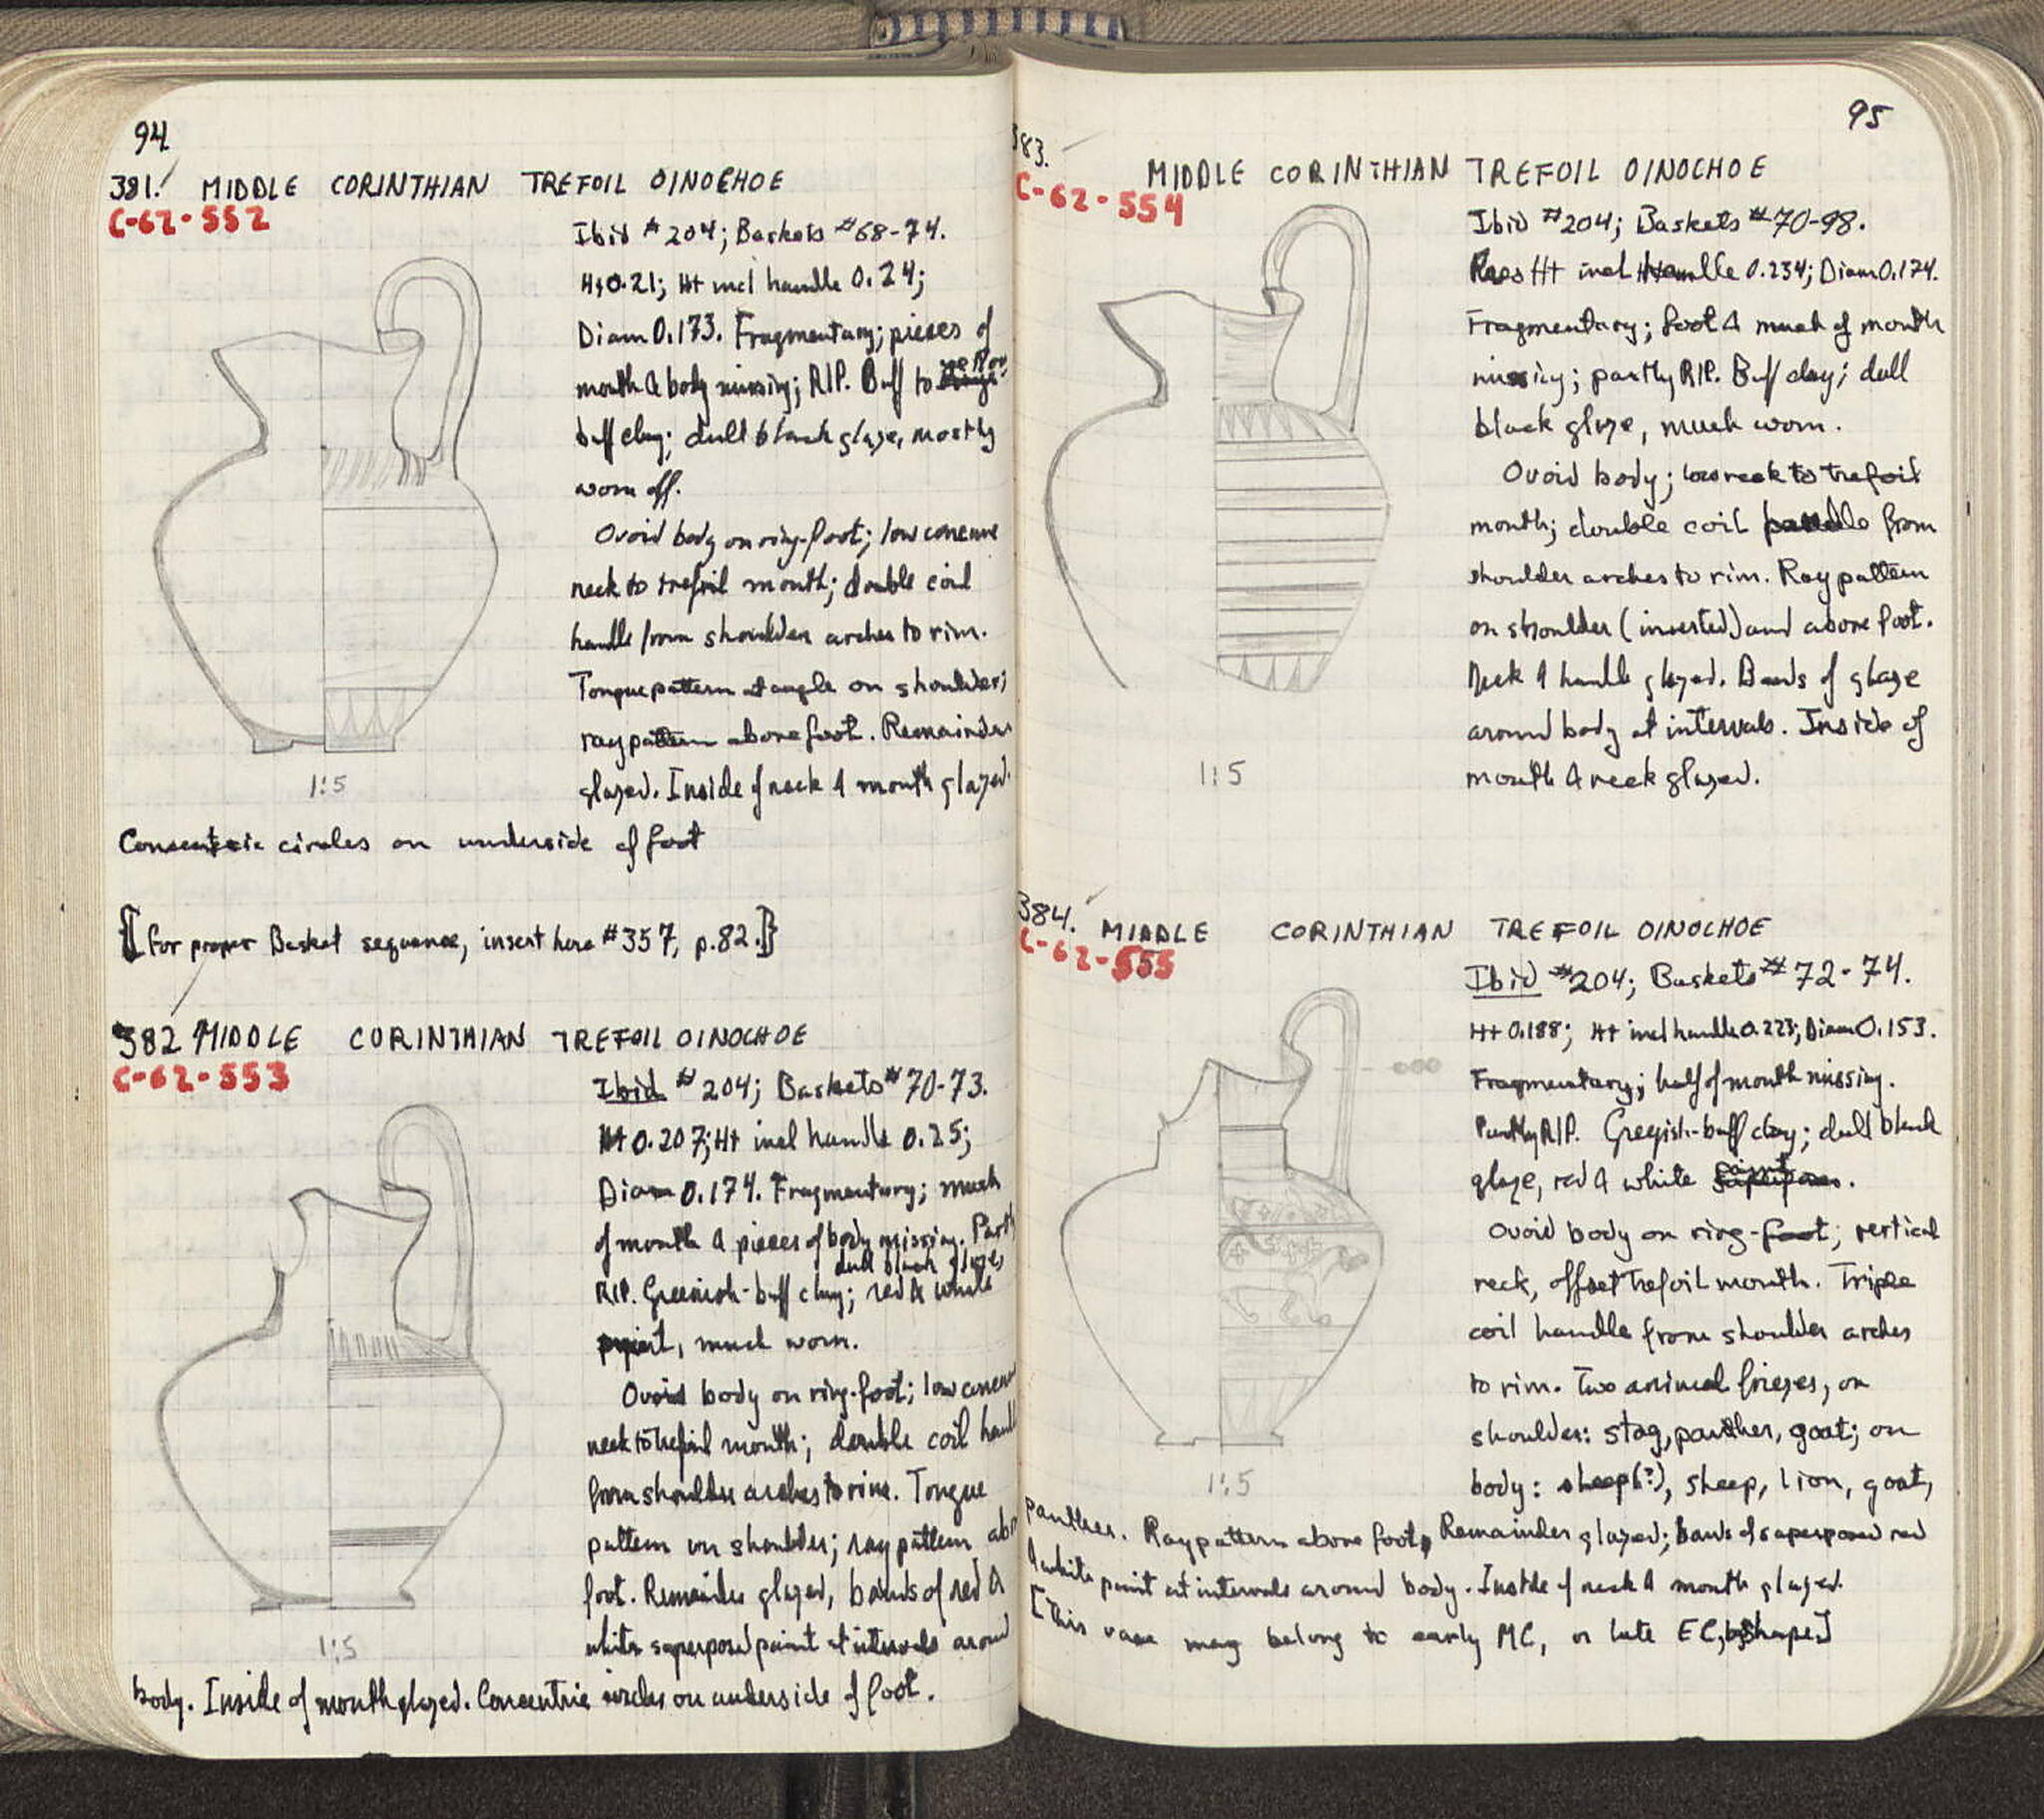 94
381. MIDDLE CORINTHIAN TREFOIL OINOCHOE
C-62-552
Ibid #204; Baskets #68-74.
Ht 0.21; Ht incl handle 0.24;
Diam 0.173. Fragmentary; pieces of
mouth & body missing; RIP. Buff to
buff clay; dull black glaze, mostly
worn off.
Ovoid body on ring-foot; low concave
neck to trefoil mouth; double coil
handle from shoulder arches to rim.
Tongue pattern at angle on shoulder;
ray pattern above foot. Remainder
glazed. Inside of neck & mouth glazed.
1:5
Concentric circles on underside of foot
{[for proper Basket sequence, insert here #357, p.82.]}
382 MIDDLE CORINTHIAN TREFOIL OINOCHOE
C-62-553
Ibid #204; Baskets #70-73.
Ht 0.207; Ht incl handle 0.25;
Diam 0.174. Fragmentary; much
of mouth & pieces of body missing. Partly
dull black glaze,
RIP. Greenish-buff clay; red & white
paint, much worn.
Ovoid body on ring-foot; low concave
neck to trefoil mouth; double coil handle
from shoulder arches to rim. Tongue
pattern on shoulder; ray pattern above
foot. Remainder glazed, bands of red &
white superposed paint at intervals around
1:5
body. Inside of mouth glazed. Concentric circles on underside of foot.
95
383.
MIDDLE CORINTHIAN TREFOIL OINOCHOE
C-62-554
Ibid #204; Baskets #70-98.
Pres Ht incl handle 0.234; Diam 0.174.
Fragmentary; foot & much of mouth
missing; partly RIP. Buff clay; dull
black glaze, much worn.
Ovoid body; low neck to trefoil
mouth; double coil handle from
shoulder arches to rim. Ray pattern
on shoulder (inverted) and above foot.
Neck & handle glazed. Bands of glaze
around body at intervals. Inside of
mouth & neck glazed.
1:5
384. MIDDLE CORINTHIAN TREFOIL OINOCHOE
C-62-555
Ibid #204; Baskets #72-74.
Ht 0.188; Ht incl handle 0.223; Diam 0.153.
Fragmentary; half of mouth missing.
Partly RIP. Greyish-buff clay; dull black
glaze, red & white paint.
Ovoid body on ring-foot; vertical
neck, offset trefoil mouth. Triple
coil handle from shoulder arches
to rim. Two animal friezes, on
shoulder: stag, panther, goat; on
body: sheep(?), sheep, lion, goat,
1:5
panther. Ray pattern above foot, Remainder glazed; bands of superposed red
& white paint at intervals around body. Inside of neck & mouth glazed.
[This vase may belong to early MC, or late EC, by shape]